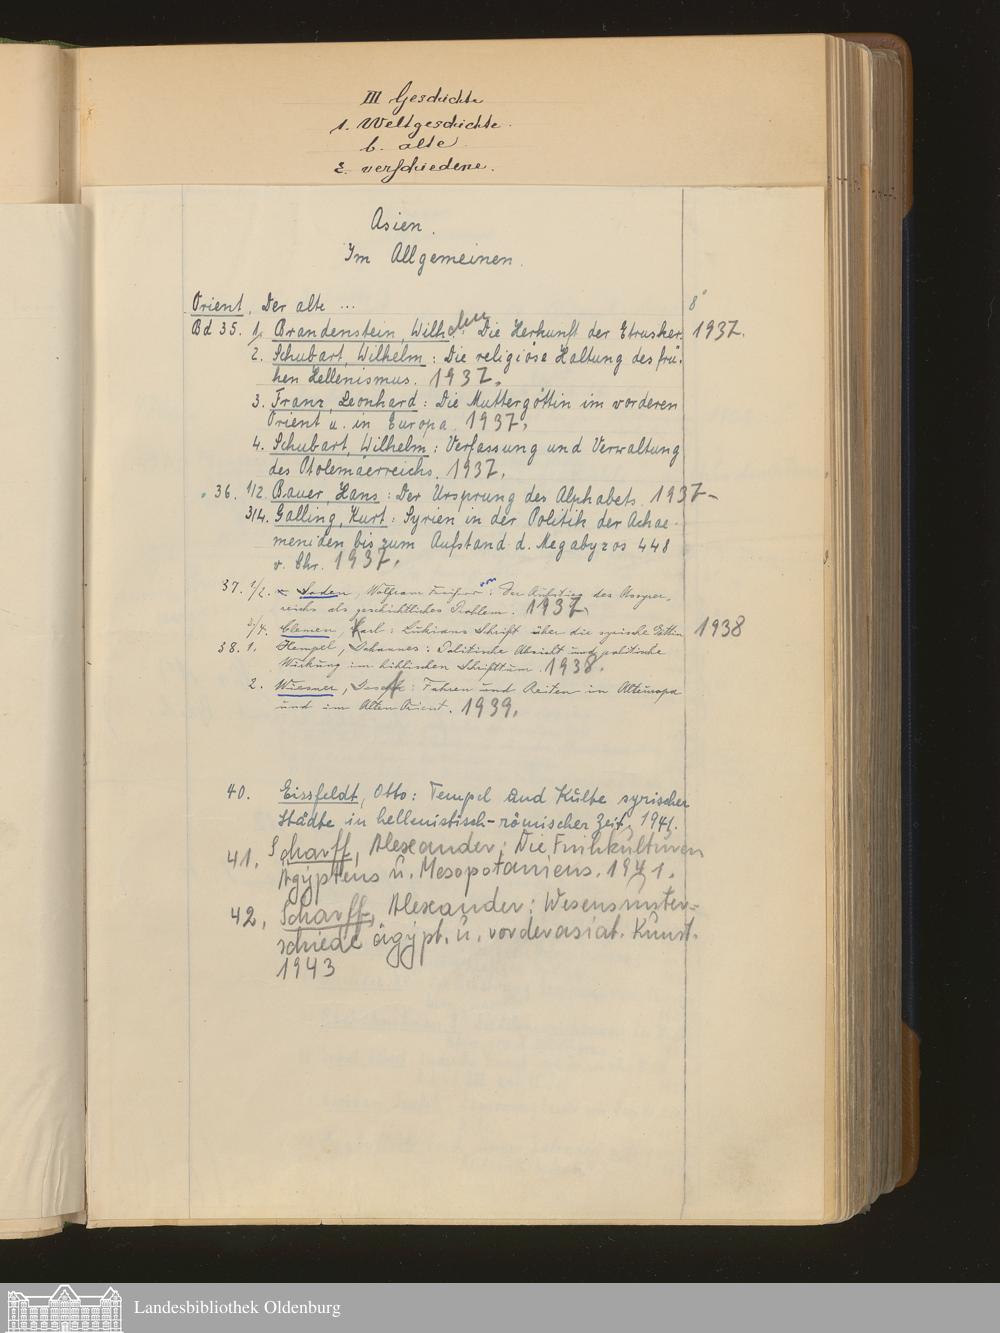 III Geschichte
1. Weltgeschichte.
b. alte
ε. verschiedene.
Asien.
Im Allgemeinen.
Orient, Der alte ... 8°
Bd 35. 1. Brandenstein, Wilhelm Die Herkunft der Etrusker. 1937.
2. Schubart, Wilhelm: Die religiöse Haltung des frü-
hen Hellenismus. 1937.
3. Franz, Leonhard: Die Muttergöttin im vorderen
Orient u. in Europa. 1937.
4. Schubart, Wilhelm: Verfassung und Verwaltung
des Ptolemäerreichs. 1937.
" 36. 1/2. Bauer, Hans: Der Ursprung des Alphabets. 1937-
3/4. Galling, Kurt: Syrien in der Politik der Achae-
meniden bis zum Aufstand d. Megabyzos 448
v. Chr. 1937.
37. 1/2. Soden, Wolfram Freiherr von: Der Aufstieg des Assyrer-
reichs als geschichtliches Problem. 1937
3/4. Clemen, Karl: Lukians Schrift über die syrische Göttin 1938
38. 1. Hempel, Johannes: Politische Absicht und politische
Wirkung im biblischen Schrifttum. 1938.
2. Wiesner, Joseph: Fahren und Reiten in Alteuropa
und im Alten Orient. 1939.
40. Eissfeldt, Otto: Tempel und Kulte syrischer
Städte in hellenistisch-römischer Zeit, 1941.
41. Scharff, Alexander: Die Frühkulturen
Ägyptens u. Mesopotamiens. 1941.
42. Scharff, Alexander: Wesensunter-
schiede ägypt. u. vorderasiat. Kunst.
1943
Landesbibliothek Oldenburg